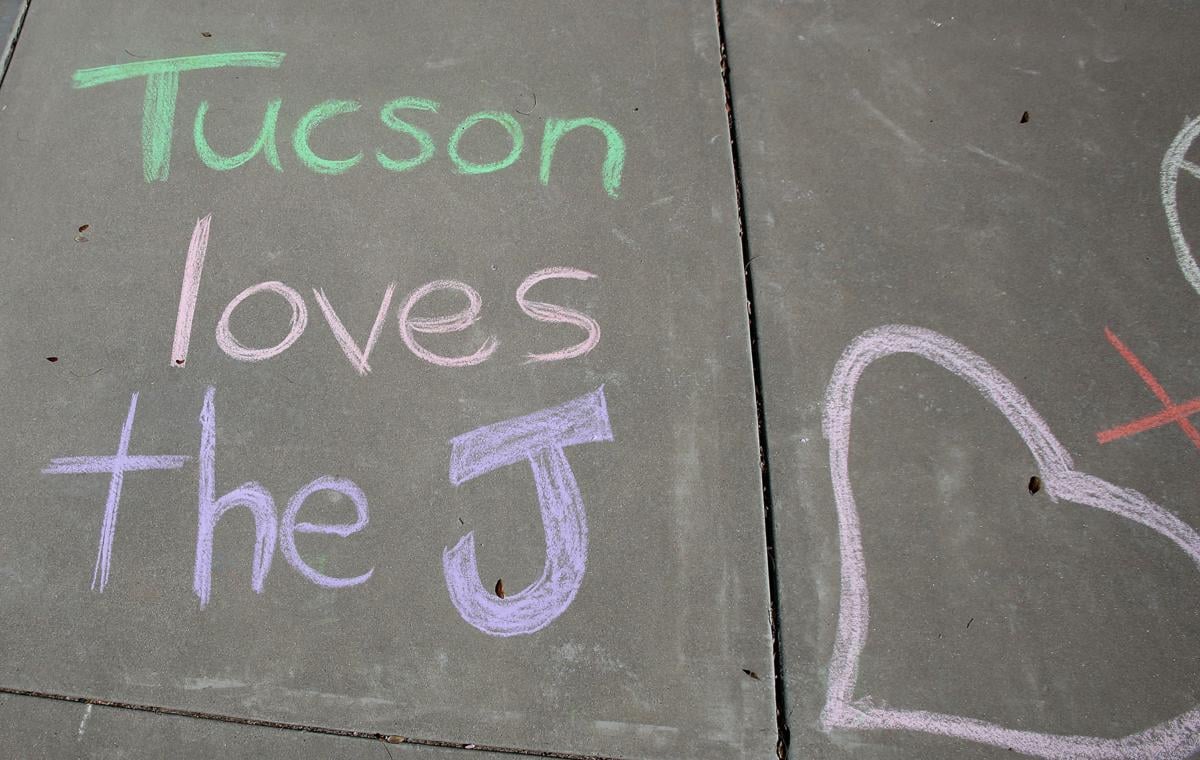 Tucson
loves
the J